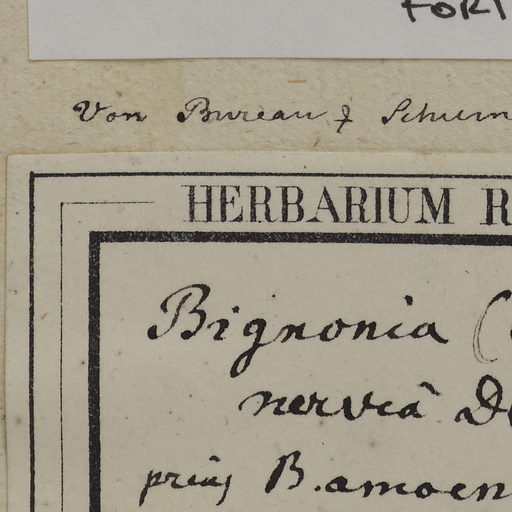 FORT
Von Bureau & Schum
HERBARIUM R
Bignonia (
nervia D
prius B. amoen